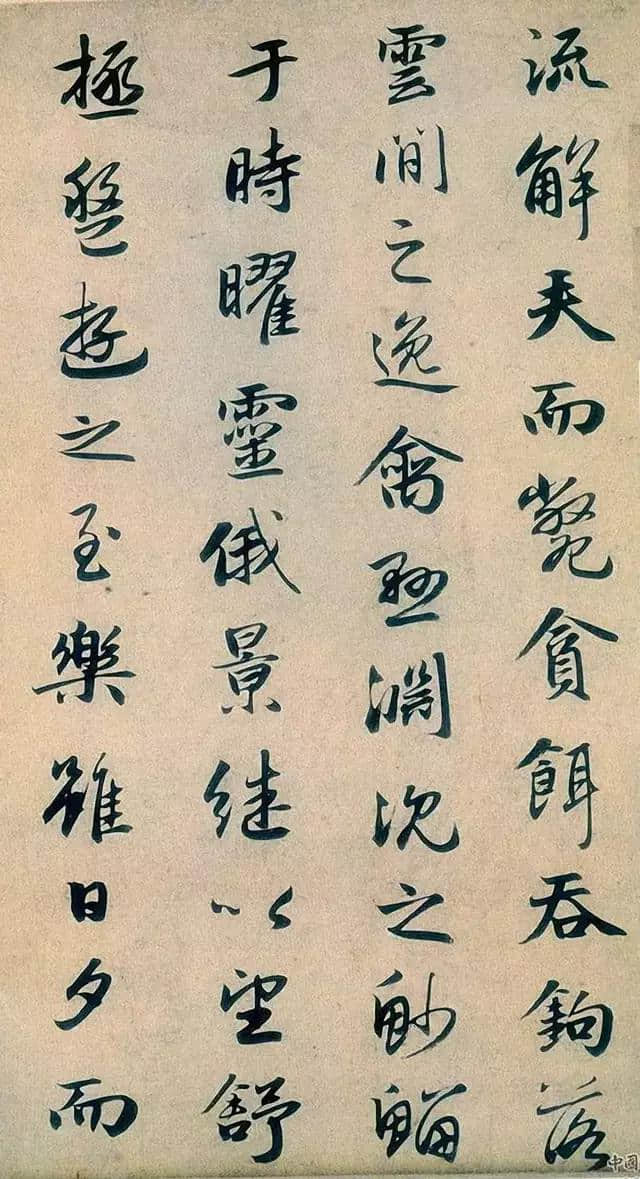 流觸矢而斃貪餌吞鉤落
雲間之逸禽懸淵沉之魦鰡
于時曜靈俄景继以望舒
極盤遊之至樂雖日夕而
中國